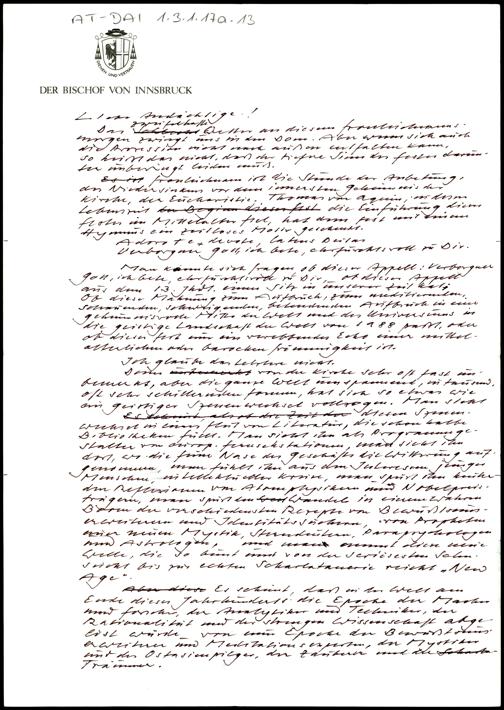 AT-DAI 1.3.1.17a.13
DIENEN UND VERTRAUEN
DER BISCHOF VON INNSBRUCK
Liebe Andächtige!
zweifelhafte
Das Wetter an diesem Fronleichnams-
morgen zwingt uns in den Dom. Aber wenn sich auch
die Prozession nicht nach außen entfalten kann,
so heißt das nicht, daß der tiefere Sinn des Festes darun-
ter unbedingt leiden muß.
Fronleichnam ist die Stunde der Anbetung,
des Niedersinkens vor dem innersten Geheimnis der
Kirche, der Eucharistie. Thomas von Aquin, in dessen
Lebenszeit die Einführung dieses
Festes im Mittelalter fiel, hat dem Fest mit seinem
Hymnus ein zeitloses Motto geschenkt.
Adoro te devote, latens Deitas
Verborgner Gott ich bete, ehrfurchtsvoll zu Dir.
Man könnte sich fragen ob dieser Appell: Verborgner
Gott, ich bete, ehrfurchtsvoll zu Dir, ob dieser Appell
aus dem 13. Jhdt. einen Sitz in unserer Zeit hat.
Ob diese Mahnung zum Aufbruch, zum meditierenden,
schauenden, schweigenden, betenden Aufbruch in eine
geheimnisvolle Mitte der Welt und des Universums in
die geistige Landschaft der Welt von 1988 paßt, oder
ob dieses Fest nur ein verebbendes Echo einer mittel-
alterlichen oder barocken Frömmigkeit ist.
Ich glaube das Letztere nicht.
Denn von der Kirche sehr oft fast un-
bemerkt, aber die ganze Welt umspannend, in tausend,
oft sehr schillernden Formen, hat sich so etwas wie
ein geistiger Szenenwechsel vollzogen. Man sieht
diesen Szenen-
wechsel in einer Flut von Literatur, die schon halbe
Bibliotheken füllt. Man sieht ihn als Programmge-
stalter von europ. Fernsehstationen, man sieht ihn
dort, wo die feine Nase des Geschäfts die Witterung auf-
genommen, man fühlt ihn aus den Interessen junger
Menschen, intellektueller Kreise, man spürt ihn hinter
den Reflexionen von Astrophysikern und Nobelpreis-
trägern, man spürt den Wandel in einem wahren
Boom der verschiedensten Rezepte von Bewußtseins-
erweiterern und Identitätssuchern, von Propheten
einer neuen Mystik, Sterndeutern, Parapsychologen
und Astrologen und man nennt diese
Welle, die so bunt und von der seriösesten Sehn-
sucht bis zur echten Scharlatanerie reicht „New
Age“.
Es scheint, daß in der Welt am
Ende dieses Jahrhunderts die Epoche der Macher
und Forscher, der Analytiker und Techniker, der
Rationalität und der strengen Wissenschaft abge-
löst würde von einer Epoche der Bewußtseins-
erweiterer und Meditationsexperten, der Mystiker
und der Ostasienpilger, der Zauberer und der
Träumer.